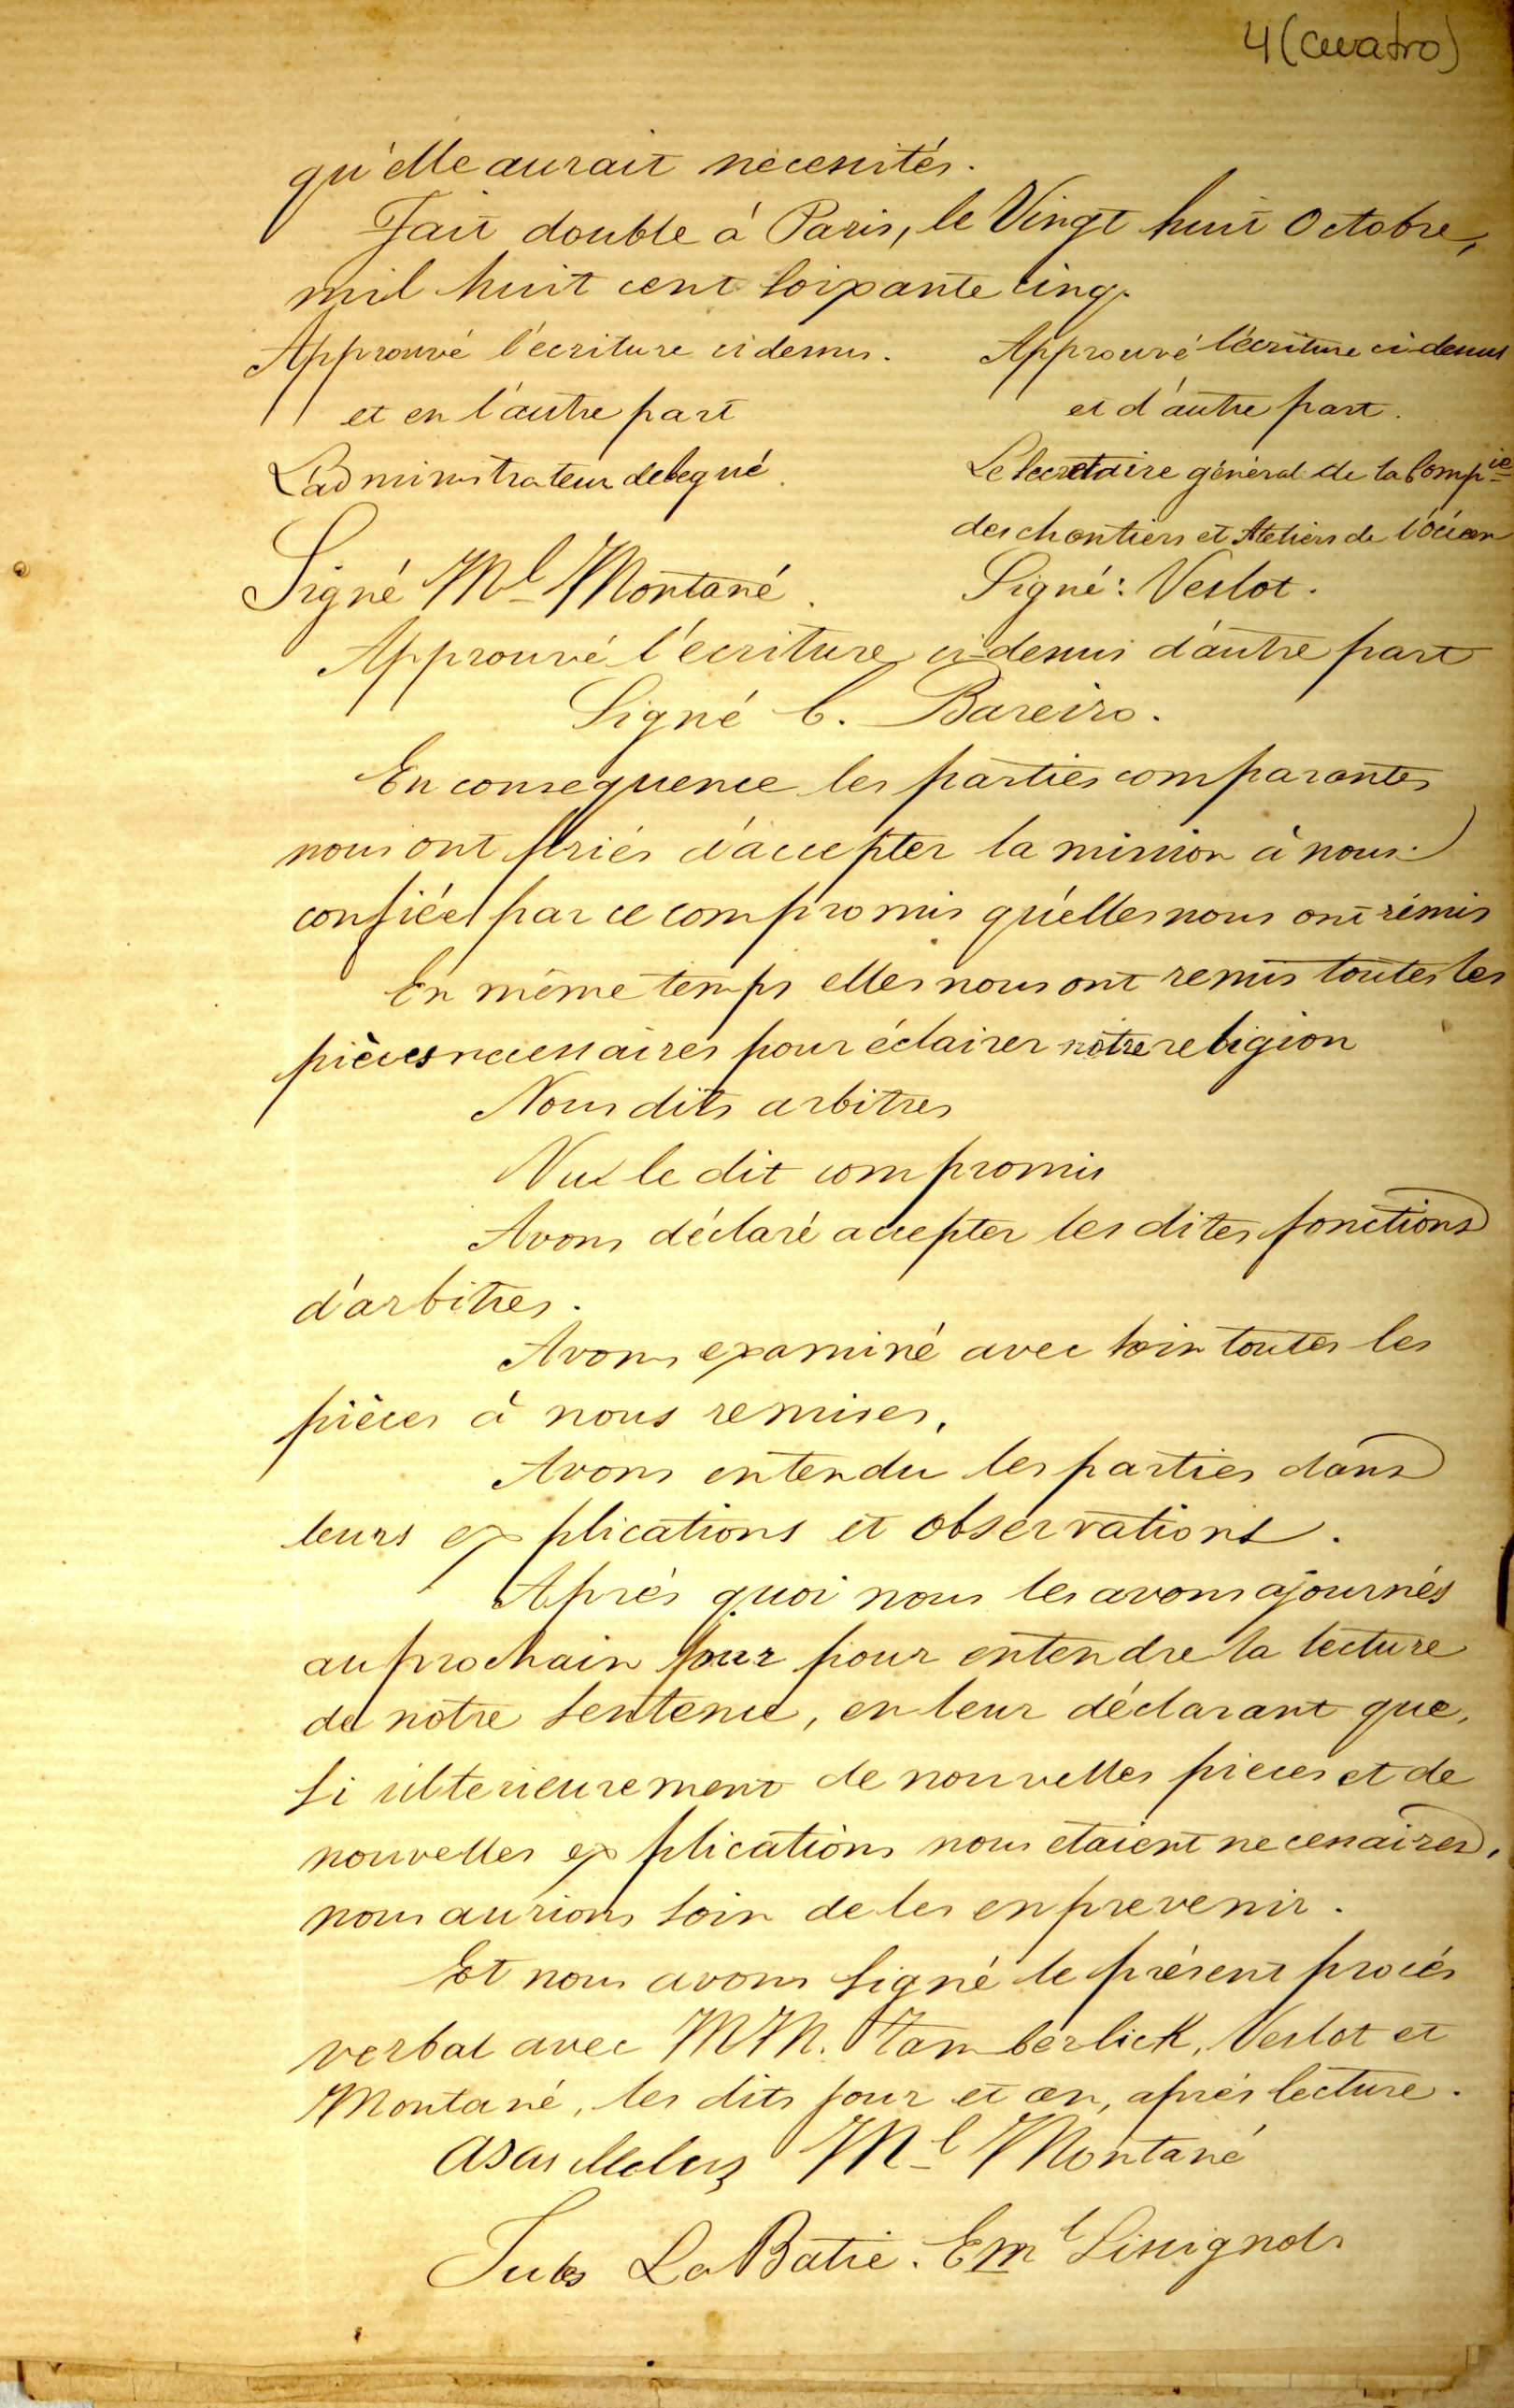 4 (cuatro)
qu'elle aurait necessités.
Fait double à Paris, le Vingt huit Octobre,
mil huit cent soixante cinq.
Approuvé l'écriture ci dessus.
et en l'autre part
L'administrateur delegué.
Signé Ml Montané.
Approuvé l'écriture ci-dessus
et d'autre part.
Le Secretaire général de la Compie
des chantiers et Ateliers de l'Océan
Signé: Veslot.
Approuvé l'écriture ci-dessus d'autre part
Signé C. Bareiro.
En consequence les parties comparantes
nous ont priés d'accepter la mission à nous
confiée par ce compromis qu'elles nous ont rémis
En même temps elles nous ont remis toutes les
pièces necessaires pour éclairer notre religion
Nous dits arbitres
Vu le dit compromis
Avons déclaré accepter les dites fonctions
d'arbitres.
Avons examiné avec soin toutes les
pièces à nous remises,
Avons entendu les parties dans
leurs explications et observations.
Aprés quoi nous les avons ajournés
au prochain jour pour entendre la lecture
de notre sentence, en leur déclarant que,
si ulterieurement de nouvelles pieces et de
nouvelles explications nous etaient necessaires,
nous aurions soin de les en prevenir.
Et nous avons signé le présent procés
verbal avec MM. Tamberlick, Veslot et
Montané, les dits jour et an, aprés lecture.
Ml Montané
Jules La Batie. Eml Lissignol